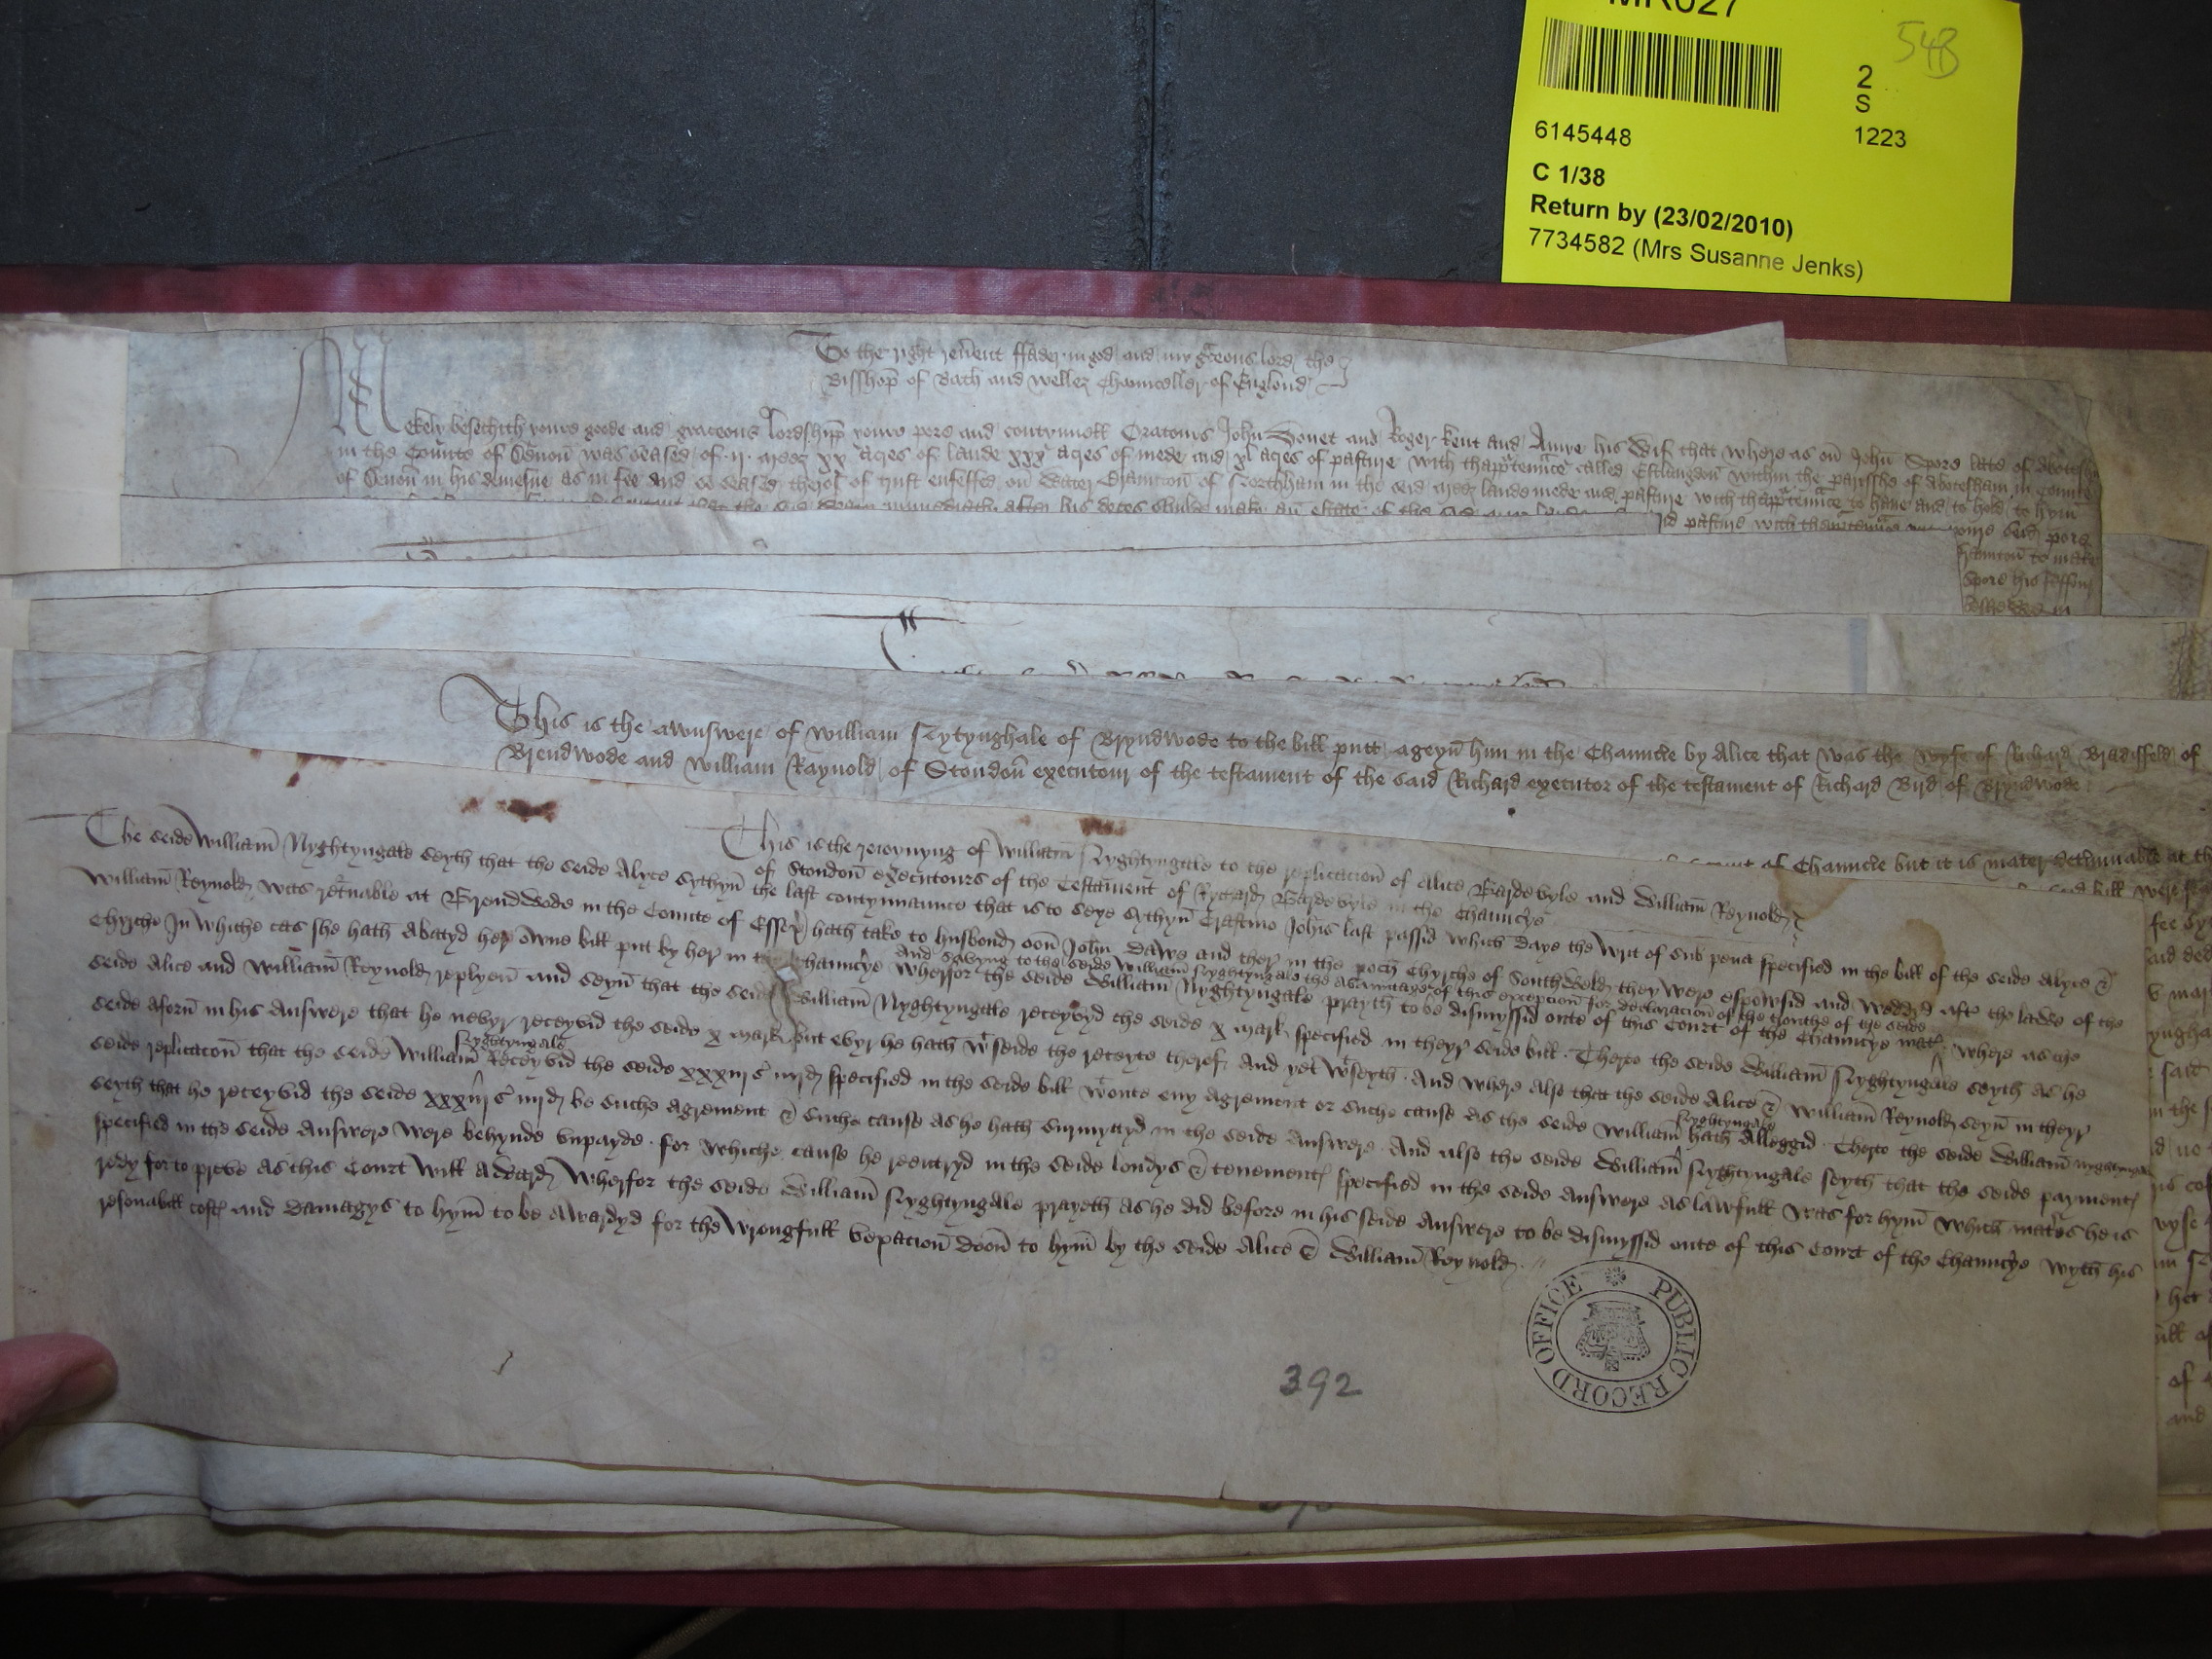 MR027
54B
2
S
6145448
1223
C 1/38
Return by (23/02/2010)
7734582 (Mrs Susanne Jenks)
To the right reu̅ent ffader in god and my gr̅cous lord the
Bisshop̅ of Bath and Wellez Chaunceller of Englond
Mekely besechith youre goode and graceous lordshipp youre pore and contynuell Oratours John Bonet and Roger Kent and Amye his Wif that where as on̅ John̅ Spore late of
in the Counte of Deuon̅ was seased of ij meez xx acres of lande xxx acres of mede and xl acres of pasture with thapp̅ten̅nce called Estlangdon̅ within the parisshe of Abotesham in Counte
of Deuon̅ in his demesne as in fee and so seased therof of trust enfeffed on̅ Water of Northham in the seid meez lande mede and pasture with thapp̅ten̅nce to haue and to hold to hym̅
immediatly after his deces shulde make an̅ estate of the
pasture with
youre seid pore
to make
Spore his feffour
This is the awnswere of William Nytynghale of Bryndwode to the bill putt ageyn̅ him in the Chauncie by Alice that was the wyfe of Richard Bradisfeld of
Brendwode and William Raynold of Stondon̅ executour of the testament of the said Richard executor of the testament of Richard Bird of Bryndwode
of Chauncie but it is mater determinable at th
seid bill were
This is the reioynyng of Willia̅m Nyghtyngale to the replicacion̅ of Alice Bardevyle and Willia̅m Reynold
of Stondon̅ executours of the Testament of Rycard Bardevyle in the Chaunc̅ye
The seide Willia̅m Nyghtyngale seyth that the seide Alyce sythyn̅ the last contynuaunce that is to seye sythyn̅ Crastino Joh̅is last passid which daye the Writ of sub pena specified in the bill of the seide Alyce &
Willia̅m Reynold was ret̅nable at Brendwode in the Counte of Essex hath take to husbond oon̅ John̅ Dawe and ther in the poch̅ Chyrche of Southwolde they were espowsid and Weddyd aft̅ the lawe of the
Chyrche In whiche cas she hath Abatyd her owne bill put by her in the Chaunc̅ye Wherfor the seide Willia̅m Nyghtyngale prayth to be dismyssid oute of this Court of the Chaunc̅ye
And savyng to the seide Willia̅m Nyghtyngale the Avauntage of this excepcion̅ for declaracion̅ of the trouthe of the seide mat̅
where as the
seide Alice and Willia̅m Reynold replyen̅ and seyn̅ that the seide Willia̅m Nyghtyngale receyvyd the seide x mark specified in theyr seide bill. Therto the seide Willia̅m Nyghtyngale seyth as he
seide aforn̅ in his Answere that he nevyr receyvid the seide x mark but evyr he hath w̅tseide the receyte therof and yet w̅tseyth. And where also that the seide Alice & Willia̅m Reynold seyn̅ in theyr
seide replicacon̅ that the seide Willia̅m Nyghtyngale receyvid the seide xxxiijs iiijd specified in the seide bill w̅toute eny Agrement or suche cause as the seide Willia̅m Nyghtyngale hath Alleggid. Therto the seide Willia̅m Nyghtyngale
seyth that he receyvid the seide xxxiijs iiijd be suche agrement & suche cause as he hath surmyttyd in the seide Answere. And also the seide Willia̅m Nyghtyngale seyth that the seide payment
specified in the seide Answere were behynde vnpayde. for whiche cause he reentryd in the seide londys & tenement specified in the seide Answere as lawfull was for hym̅ which mat̅es he is
redy for to preve as this Court will Award Wherfor the seide Willia̅m Nyghtyngale prayeth as he did before in his seide Answere to be dismyssid oute of this Court of the Chaunc̅ye wyth his
resonabill cost and damagys to hym̅ to be Awardyd for the wrongfull vexacion̅ doon̅ to hym̅ by the seide Alice & Willia̅m Reynold
PUBLIC RECORD OFFICE
392